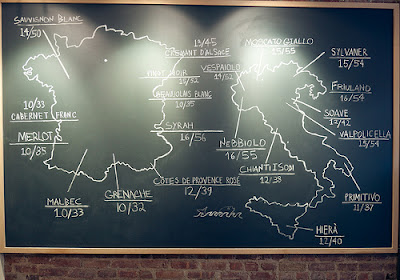 SAUVIGNON BLANC
14/50
10/33
CABERNET FRANC
MERLOT
10/35
MALBEC
10/33
GRENACHE
10/32
CÔTES DE PROVENCE ROSE
12/39
SYRAH
16/56
BEAUJOLAIS BLANC
10/35
PINOT NOIR
13/45
CREMANT D'ALSACE
VESPAIOLO
MOSCATO GIALLO
15/55
SYLVANER
15/54
FRIULANO
16/54
SOAVE
VALPOLICELLA
15/54
NEBBIOLO
16/55
CHIANTI
12/38
PRIMITIVO
11/37
HIERÀ
12/40